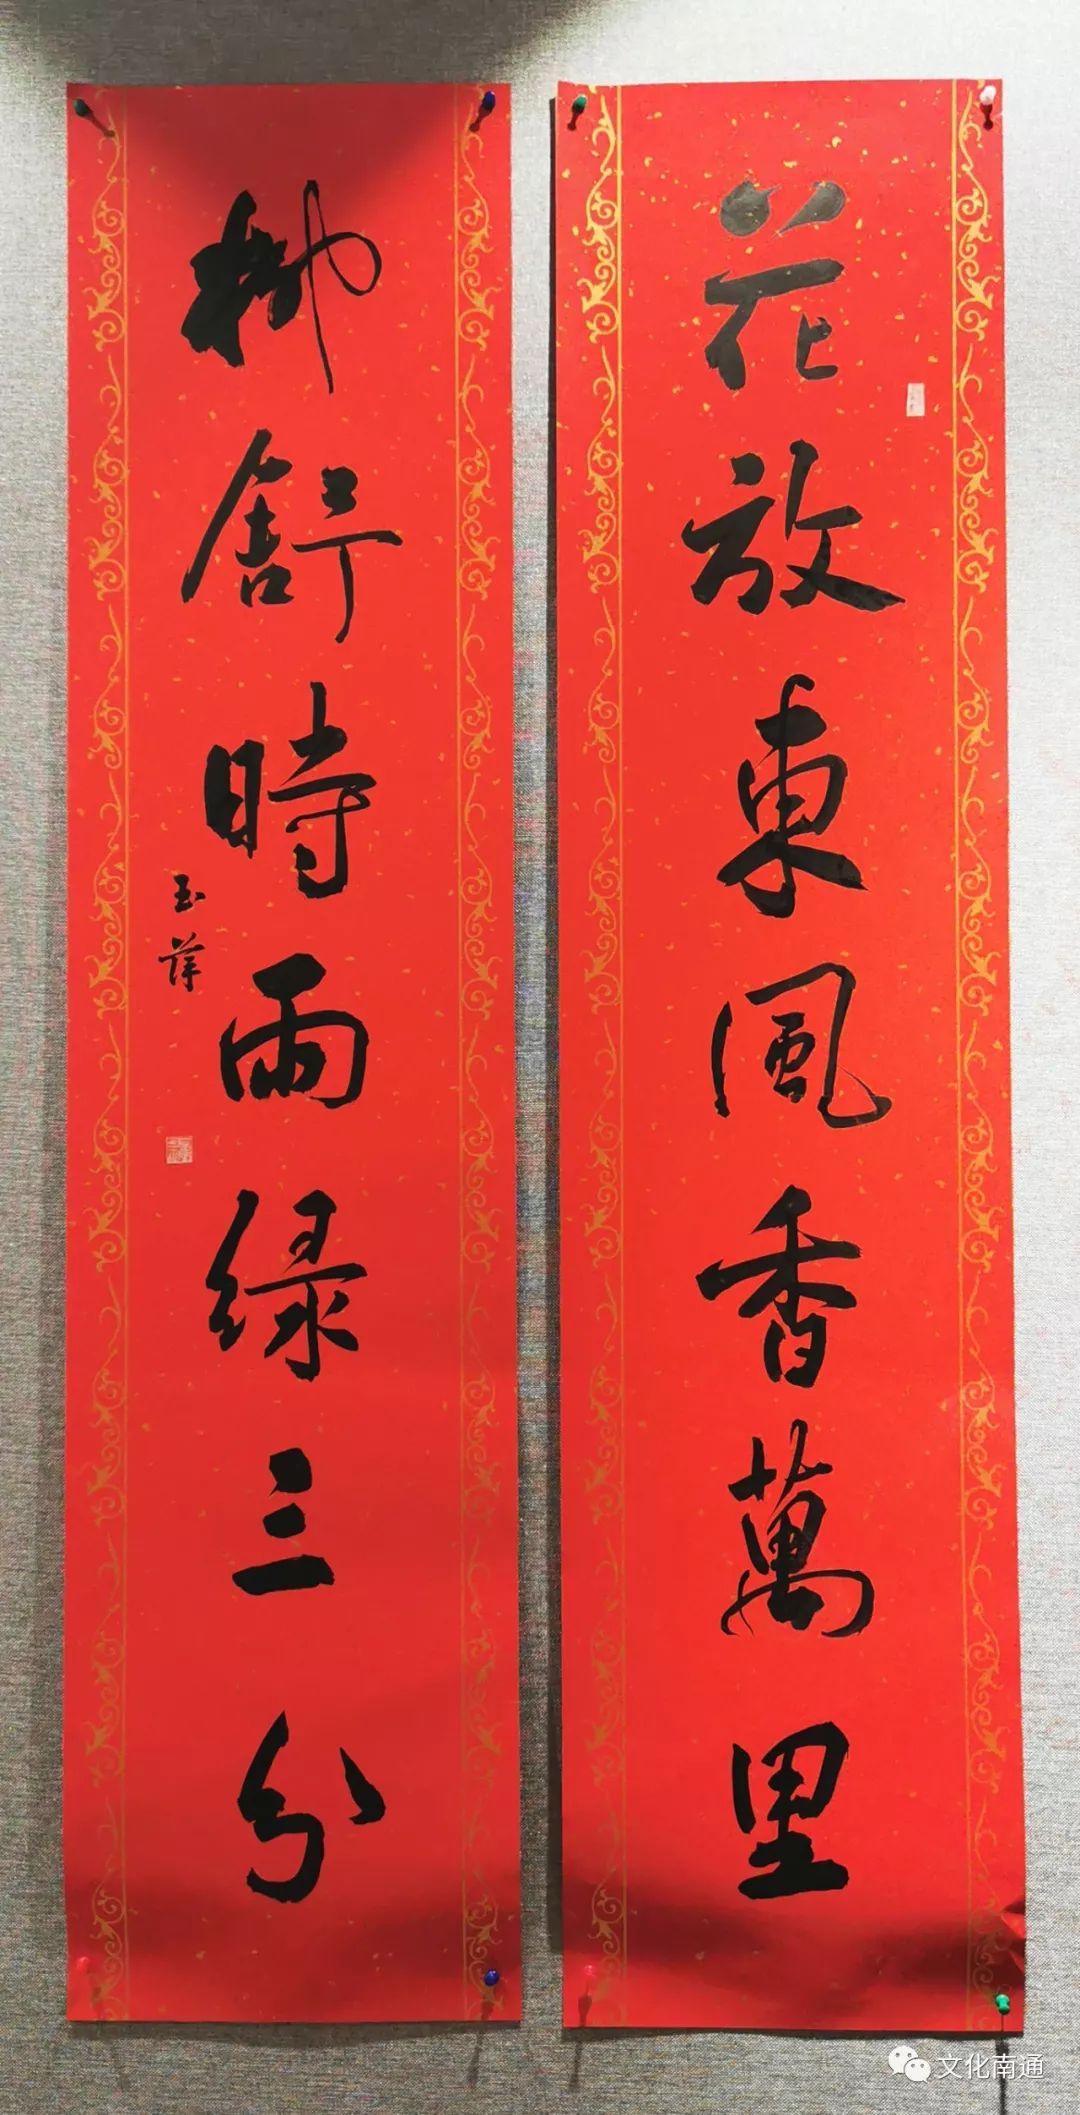 花放東風香萬里
柳舒時雨緑三分
玉萍
文化南通